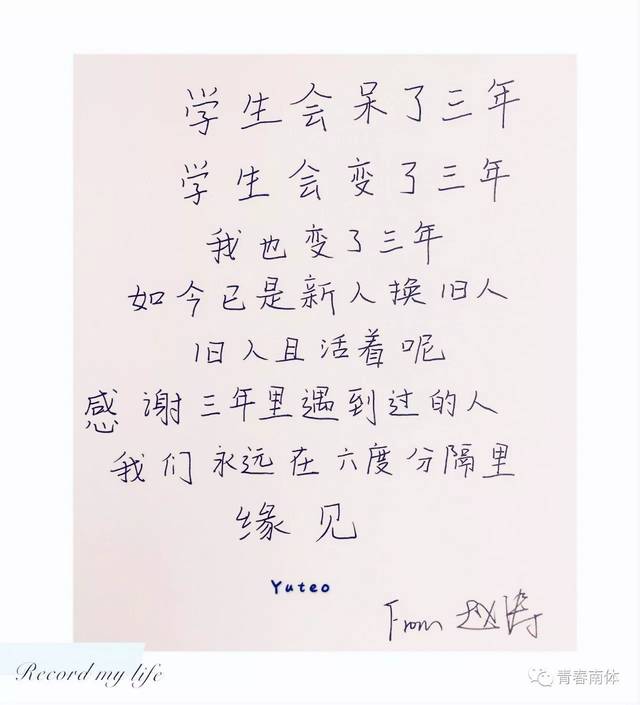 学生会呆了三年
学生会变了三年
我也变了三年
如今已是新人换旧人
旧人且活着呢
感谢三年里遇到过的人
我们永远在六度分隔里
缘见
Yuteo
From 赵涛
Record my life
青春南体